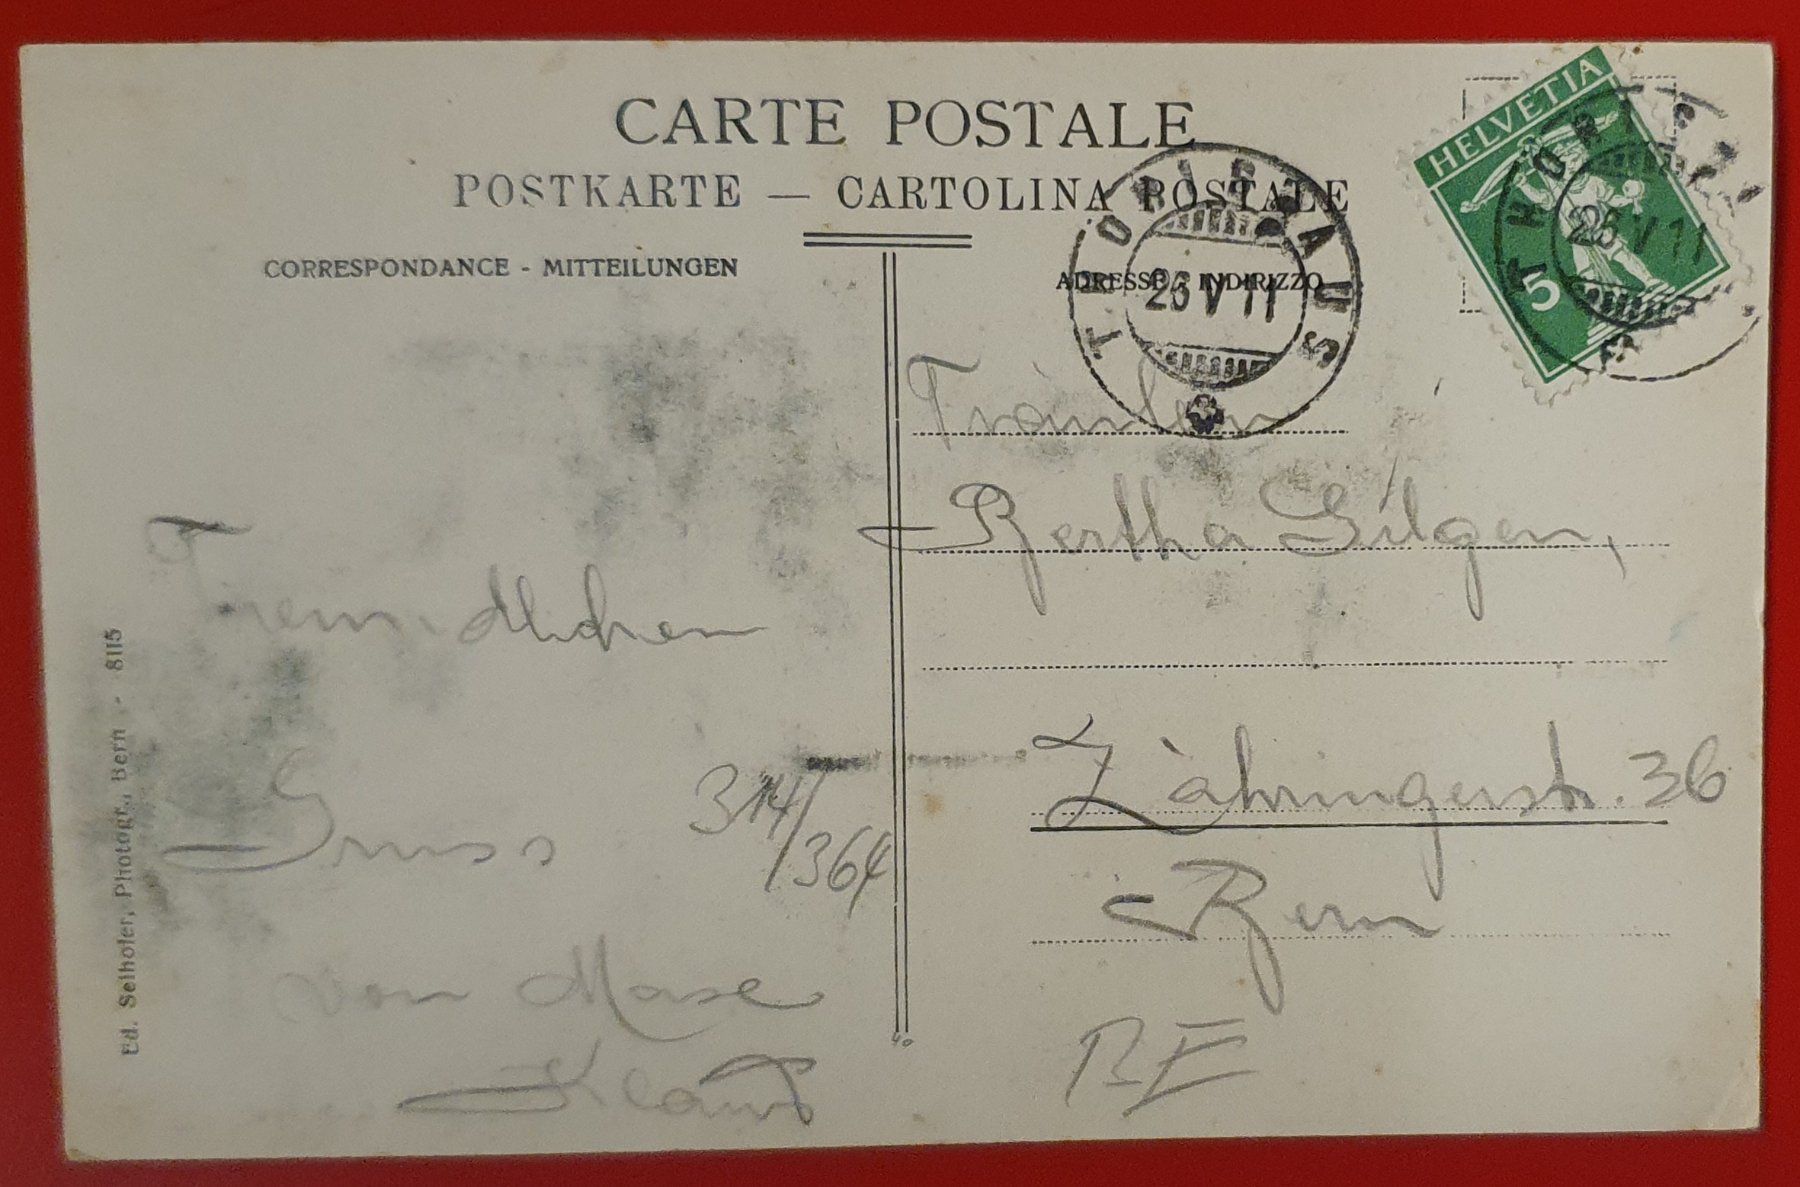 CARTE POSTALE
POSTKARTE — CARTOLINA POSTALE
CORRESPONDANCE - MITTEILUNGEN
ADRESSE - INDIRIZZO
HELVETIA
5
THÖRISHAUS
26 V 11
26 V 11
Fräulein
Bertha Gilgen,
Zähringerstr. 36
Bern
BE
Freundlichen
Gruss
314/364
von
Ed. Selhofer, Photogr., Bern - 8115